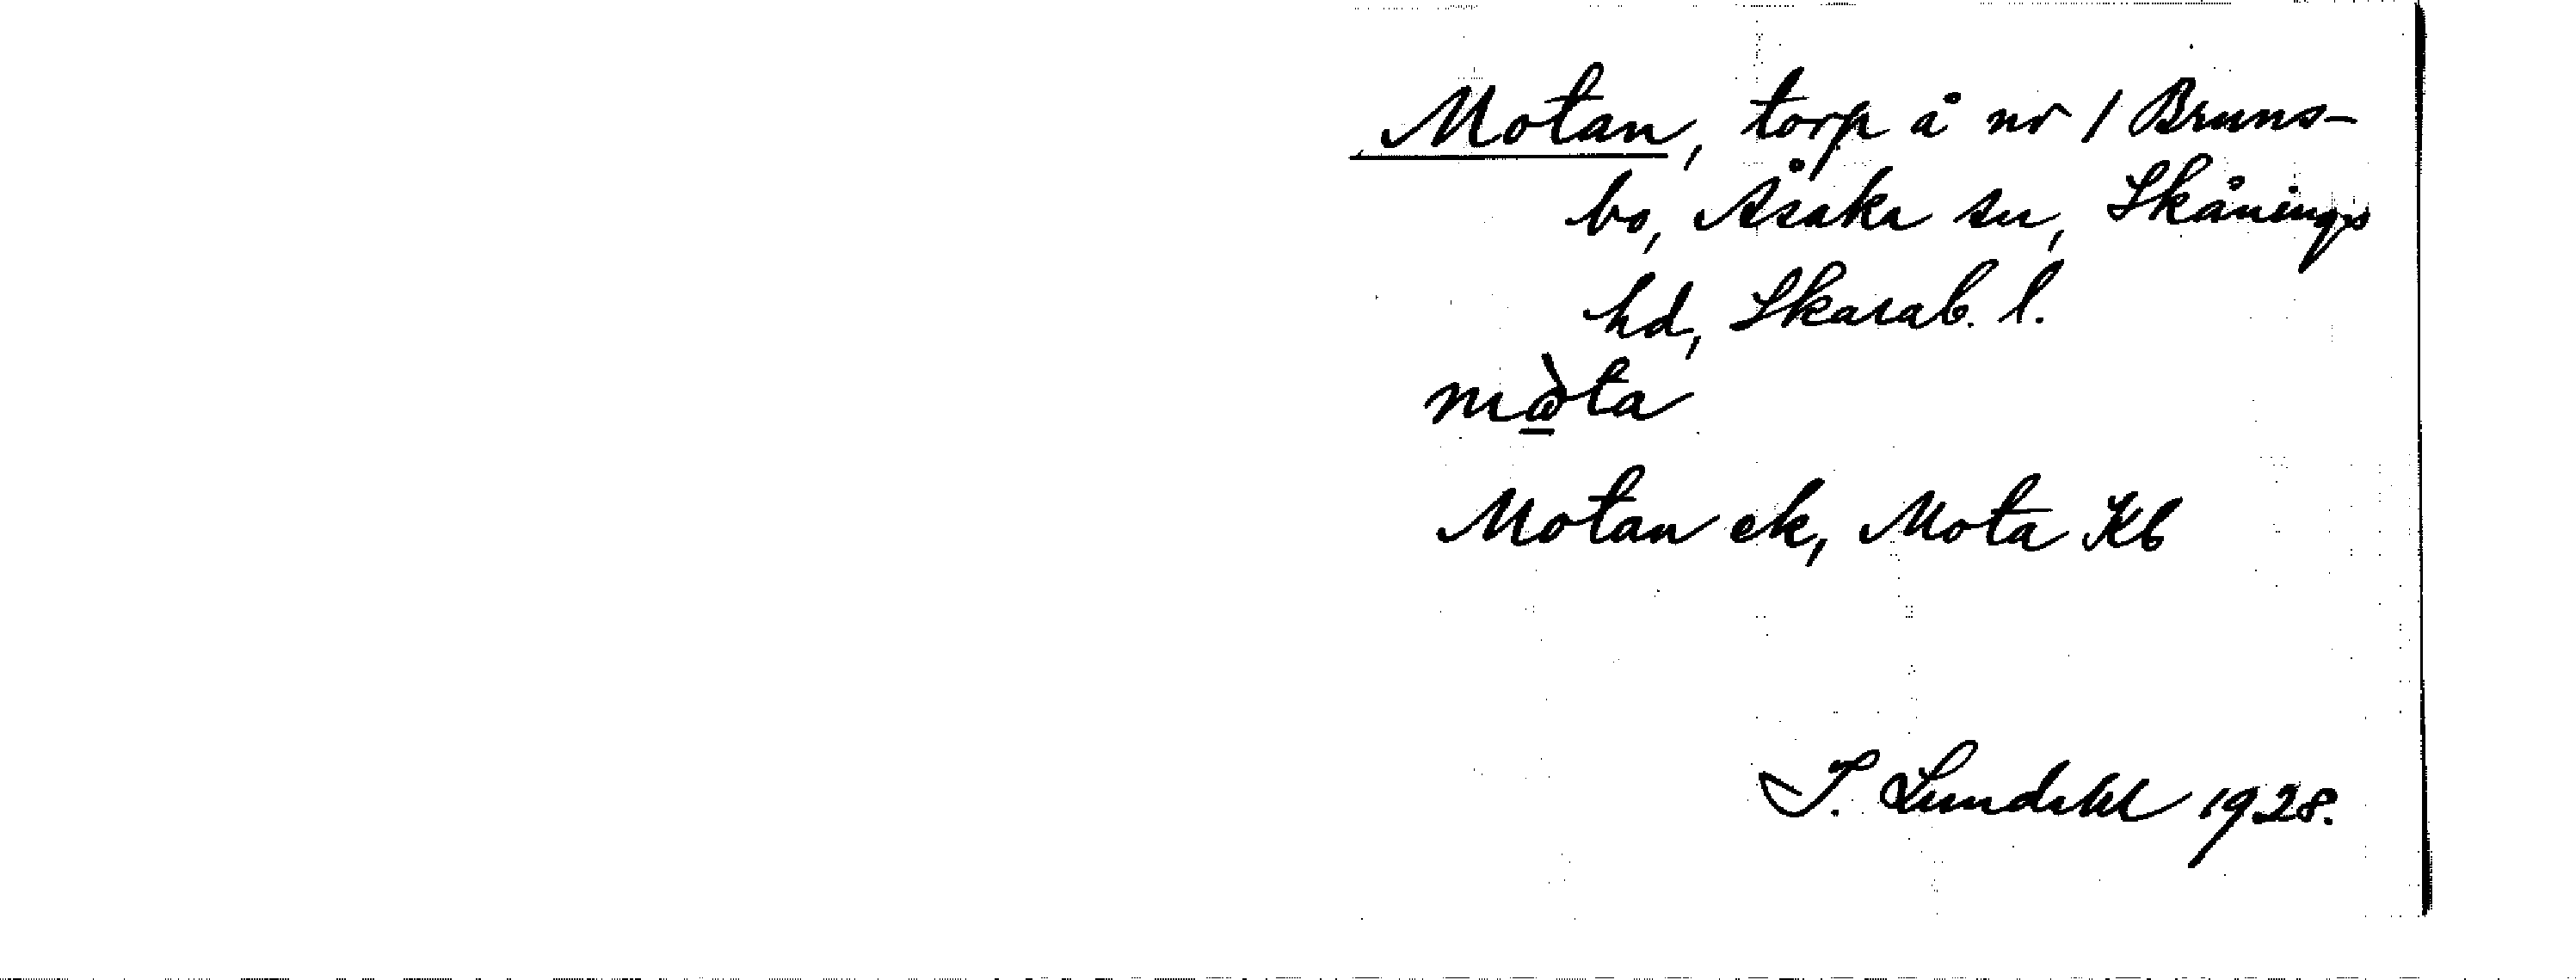 Motan, torp å nr 1 Bruns-
bo, Åsaka sn, Skånings
hd, Skarab. l.
mὼ̱ta
Motan ek, Mota Kb
I. Lundahl 1928.